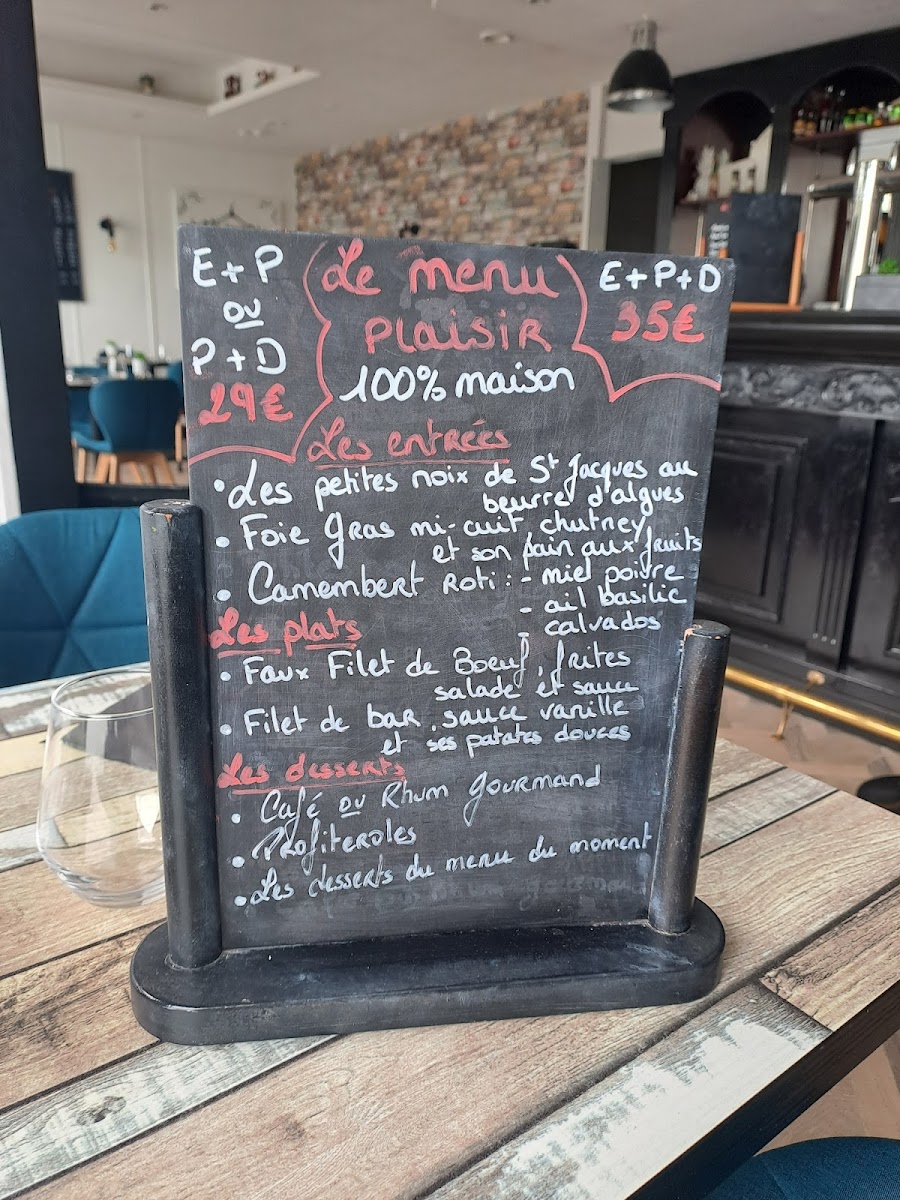 E+P
ou
P+D
29€
Le menu
PLaisiR
100% maison
E+P+D
35€
Les entrées
• Les petites noix de St Jacques au
beurre d'algues
• Foie Gras mi-cuit, chutney
et son pain aux fruits
• Camembert Roti : - miel poivre
- ail basilic
- calvados
Les plats
• Faux Filet de Boeuf, frites
salade et sauce
• Filet de bar, sauce vanille
et ses patates douces
Les desserts
• Café ou Rhum Gourmand
• Profiteroles
• Les desserts du menu du moment